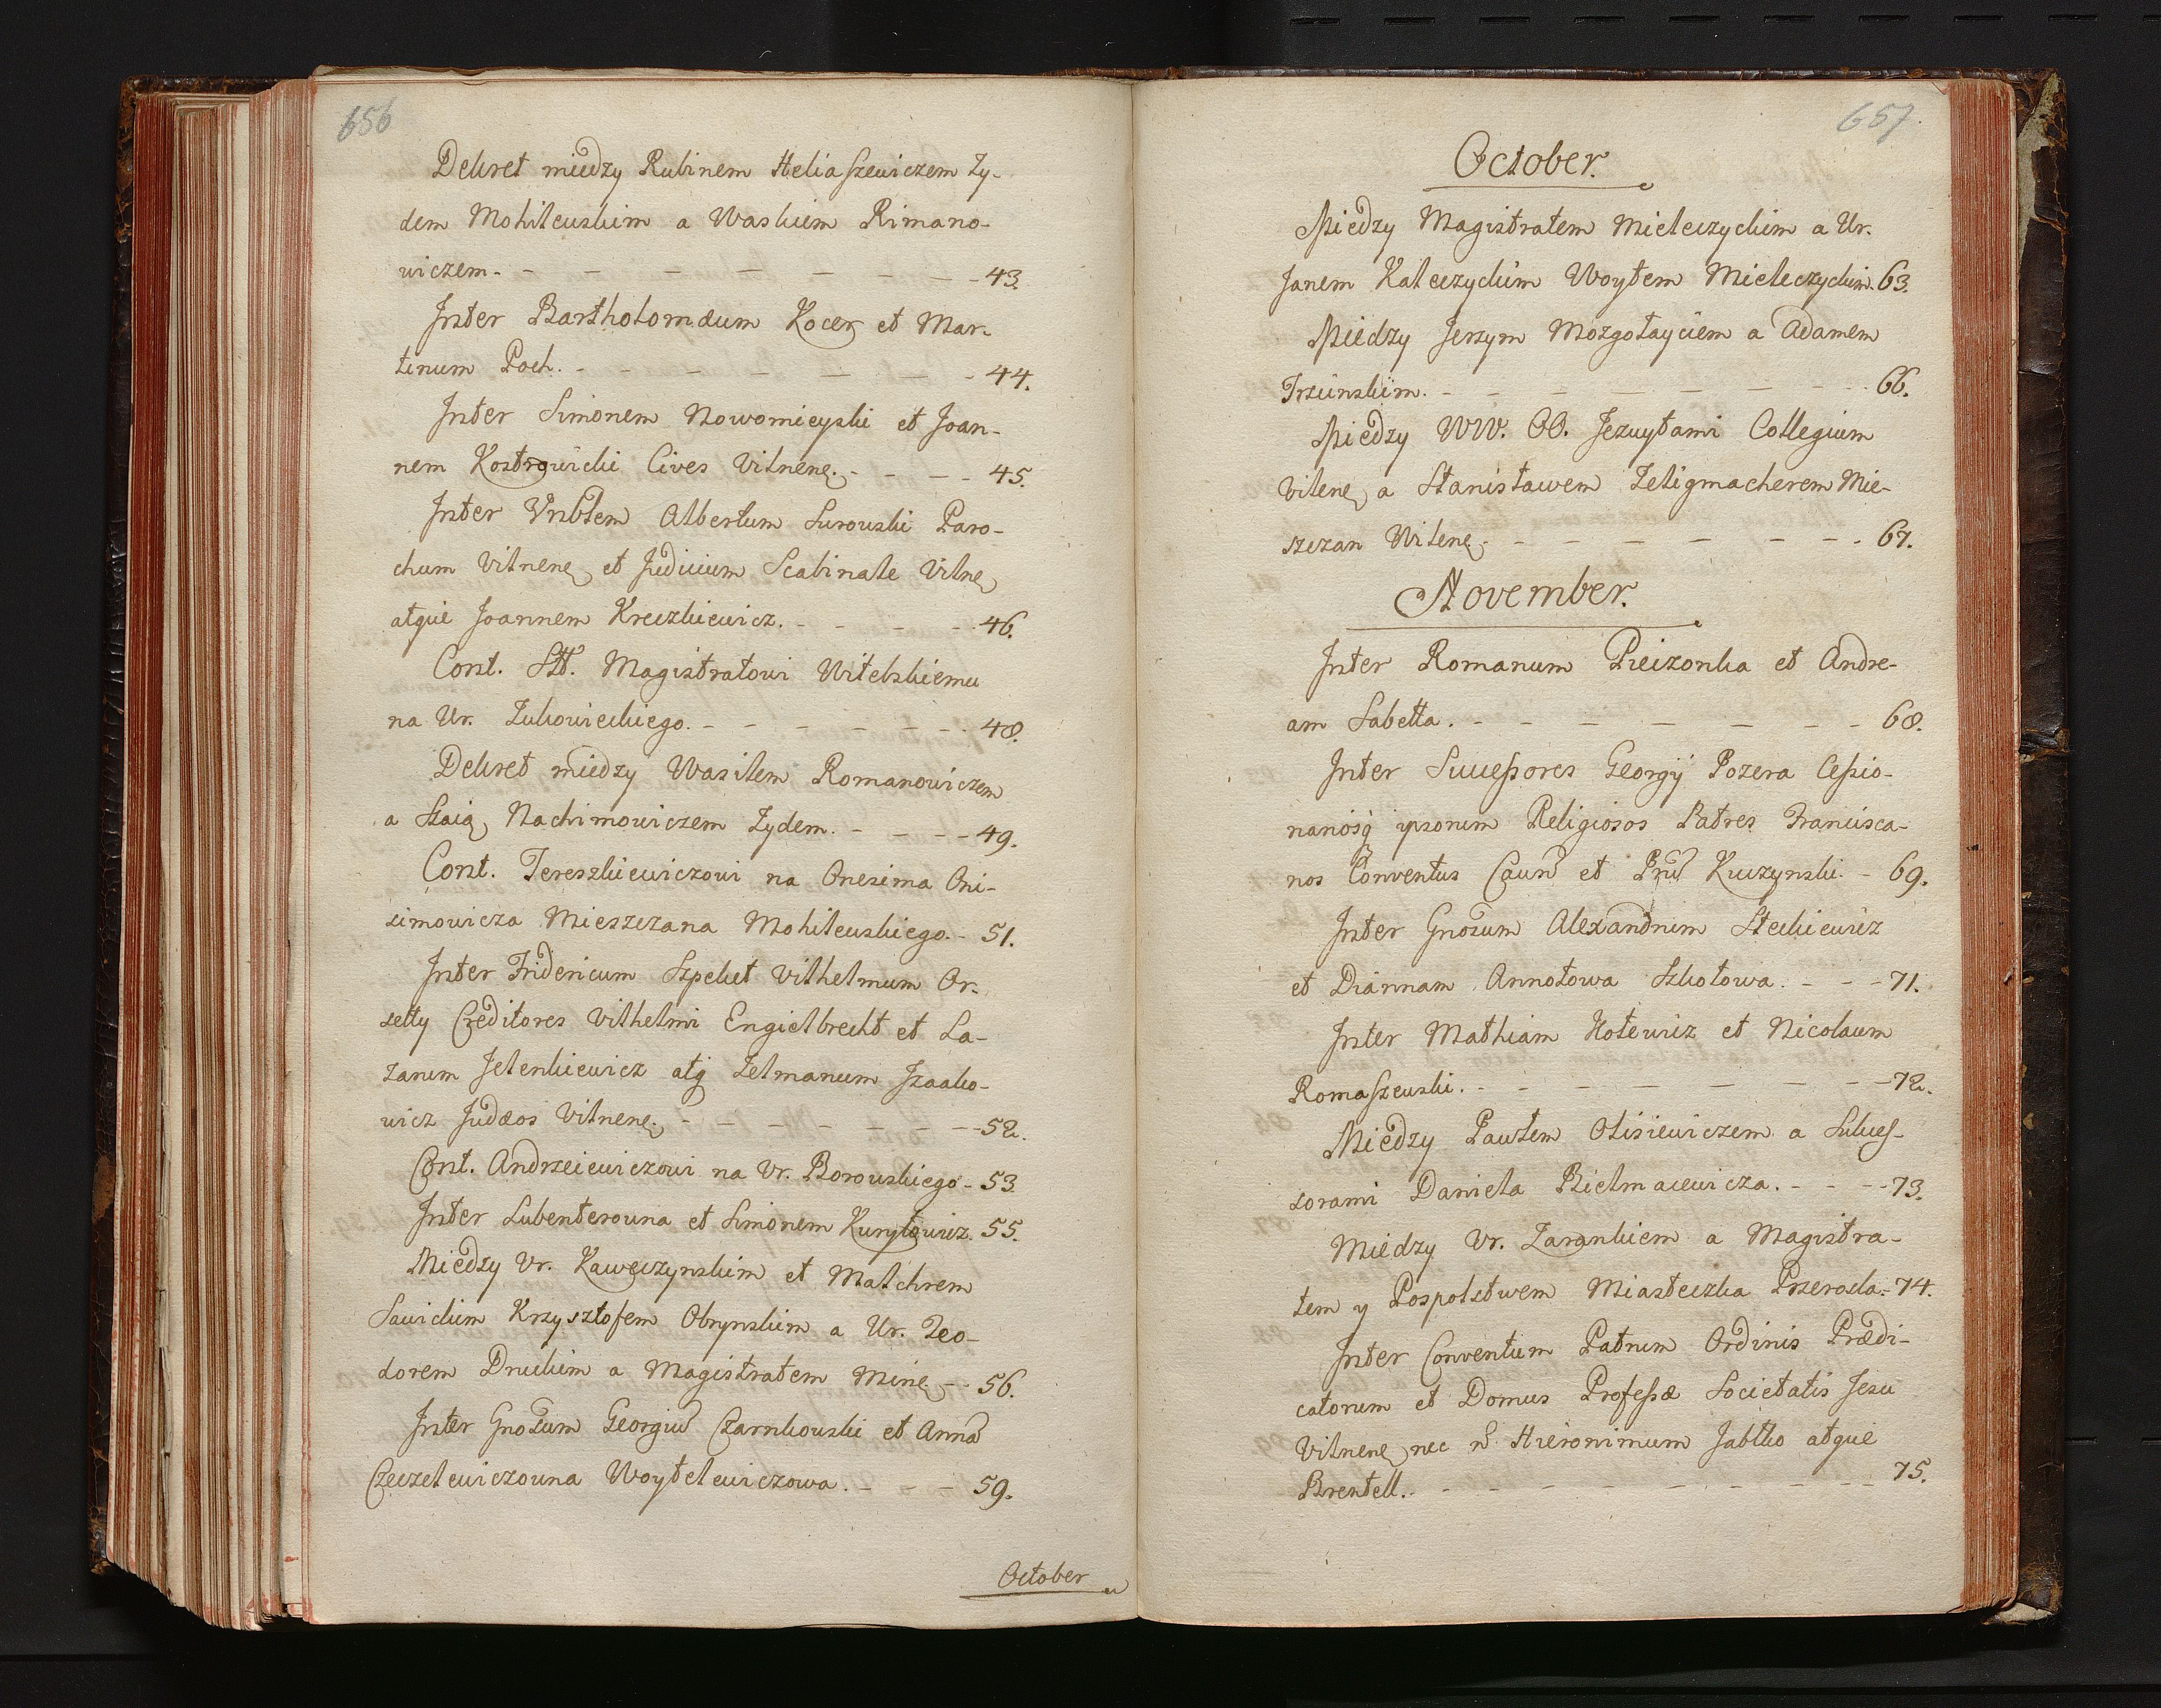 656
Dekret między Rubinem Heliaszewiczem Ży-
dem Mohilewskim a Waskiem Rimano-
wiczem. - - - - - - - - 43.
Inter Bartholomæum Kocer et Mar-
tinum Poch. - - - - - - - 44.
Inter Simonem Nowomieyski et Joan-
nem Kostrowicki Cives Vilnenẽ. - - - - 45.
Inter Vnblem Albertum Surowski Paro-
chum Vilnenẽ et Judicium Scabinale Vilnẽ
atque Joannem Kreczkiewicz. - - - - 46.
Cont. Stt. Magistratowi Witebskiemu
na Ur. Żukowieckiego. - - - - - - 48.
Dekret między Wasilem Romanowiczem
a Szaią Nachimowiczem Żydem. - - - - 49.
Cont. Tereszkiewiczowi na Onesima Oni-
simowicza Mieszczana Mohilewskiego. - 51.
Inter Fridericum Szpekt Vilhelmum Or-
setty Creditores Vilhelmi Engielbrecht et La-
zarum Jelenkiewicz atq Zelmanum Jzaako-
wicz Judæos Vilnenẽ. - - - - - - - - 52.
Cont. Andrzeiewiczowi na Vr. Borowskiego - 53
Inter Lubenterowna et Simonem Kuryłowicz. 55.
Między Vr. Kaweczynskim et Malchrem
Sawickim Krzysztofem Obrynskim a Ur. Teo-
dorem Druckim a Magistratem Minẽ - - 56.
Inter Gnosum Georgiũ Czarnkowski et Annã
Czeczelewiczowna Woytelewiczowa. - - - 59.
October
657.
October.
Między Magistratem Mielczyckim a Ur.
Janem Kalczyckim Woytem Mieleczyckim. 63.
Między Jerzym Mozgołayciem a Adamem
Trzinskim. - - - - - - - - 66.
Między WW. OO. Jezuytami Collegium
Vilenẽ a Stanisławem Zeligmacherem Mie-
szczan Wilenẽ. - - - - - - - 67.
November.
Inter Romanum Pieizonka et Andre-
am Sabetta. - - - - - - - - 68.
Inter Successores Georgij Pozera Cessio-
nariosq ipsorum Religiosos Patres Francisca-
nos Conventus Caunẽ et Prũ Kuczynski. - 69.
Inter Gnosum Alexandrum Steckiewicz
et Diannam Annotowa Szkotowa. - - - 71.
Inter Mathiam Hotewicz et Nicolaum
Romaszewski. - - - - - - - - 72.
Między Pawłem Olisiewiczem a Sukces-
sorami Daniela Bielmacewicza. - - - 73.
Między Vr. Zarankiem a Magistra-
tem y Pospolstwem Miasteczka Przerosla. - 74.
Inter Conventum Patrum Ordinis Prædi-
catorum et Domus Professæ Societatis Jesu
Vilnenẽ nec ñ Hieronimum Jabłko atque
Brentell. - - - - - - - - - 75.